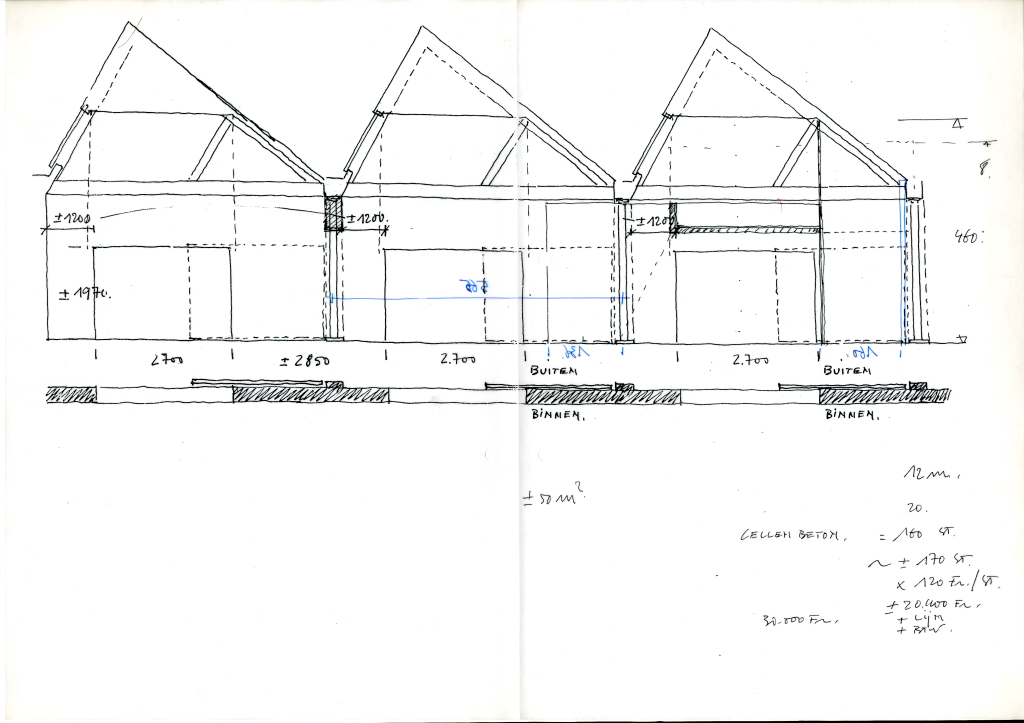 ± 1200
± 1200.
± 1200
460.
2700
± 2850
2.700
2.700
BUITEN
BUITEN
BINNEN.
BINNEN.
± 50 m²
12 m.
20.
CELLEN BETON. = 160 ST.
~ ± 170 ST.
x 120 Fr./ST.
± 20.400 Fr.
30.000 Fr.
+ LIJM
+ BTW.